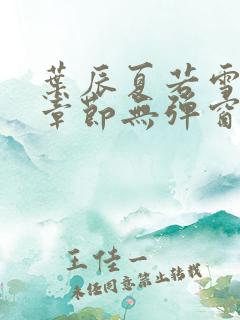 葉辰夏若雪
章節無彈窗
王佳一
未经同意禁止转载